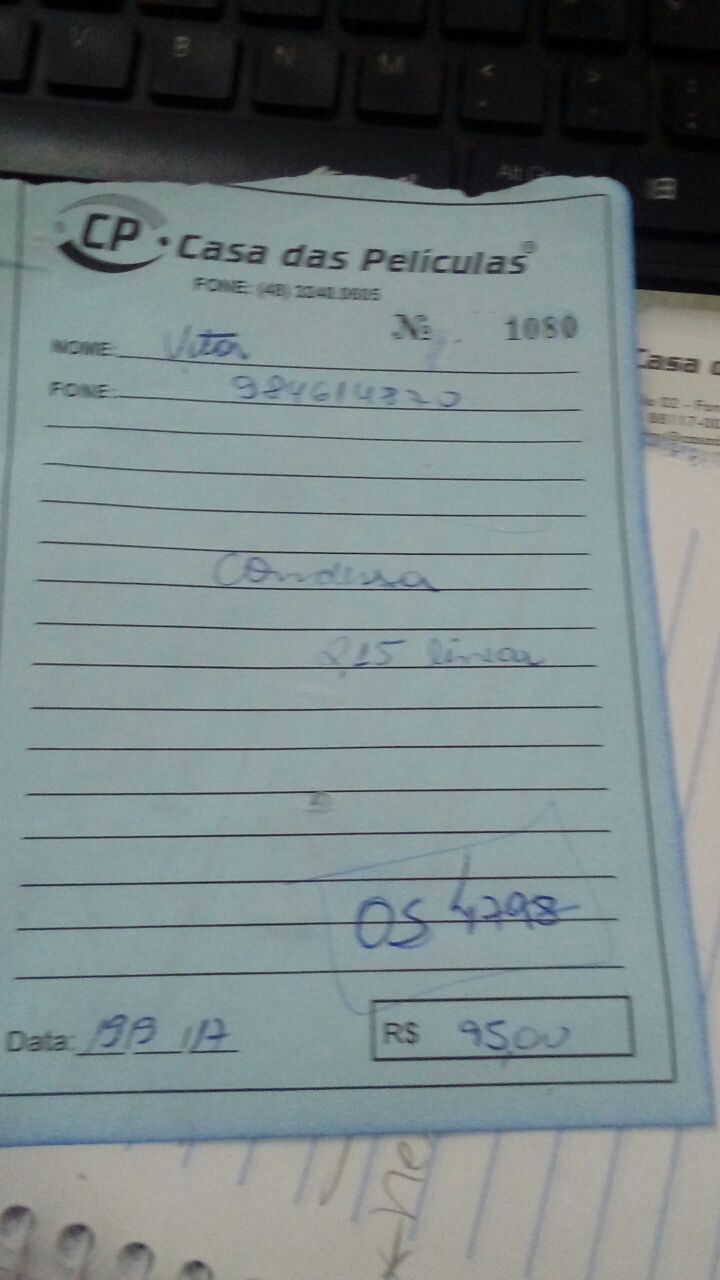 CP Casa das Películas®
FONE: (48) 3240.0605
Nº 1080
NOME: Vitor
FONE: 984614870
Condessa
2,15 linear
OS 4798
Data: /17
R$ 95,00
Casa
V B N M